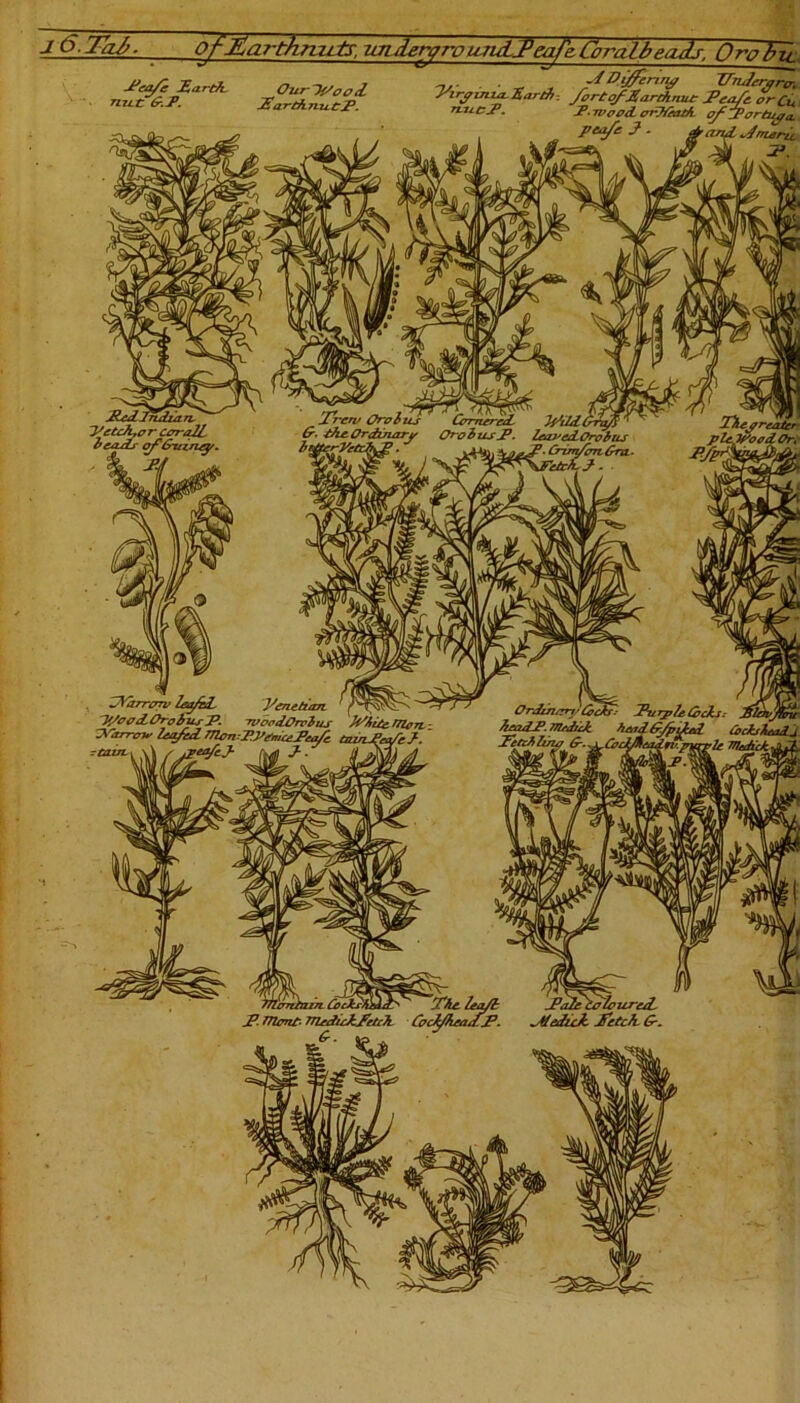 16. Tab. Of Earthnuts, underground Pease Corall beads, Orobu
Pease Earth
nut G. P.
Our Wood
Earthnut P.
Virginia Earth-
nut P.
A Differing
sort of Earthnut
P. wood or Heath
pease J.
Undergrou
Pease or
of Portuga
and Americ
P.
Red Indian
Vetch, or corall
beads of Guiney.
P.
Trew Orobus
G. the Ordinary
bitter Vetch P.
Cornered
Orobus P.
Wild Grass
leaved Orobus
P. Crimson Gra.
Fetch J.
The greater
ple Wood Or
Narrow leafed
Wood Orobus P.
Narrow leafed Mon-
tain pease J.
Venetian
wood Orobus
P Venice Pease
J.
White Mon-
tain Pease J.
Ordinary Cocks-
head P. Medick
Fetchling G.
Purple Cocks-
head G. spiked
Cockshead
purple Medick
P.
Cockshead J
Mountain Cockshead
P. Mont. Medick Fetch
G.
The least
Cockshead P.
Pale coloured
Medick Fetch G.